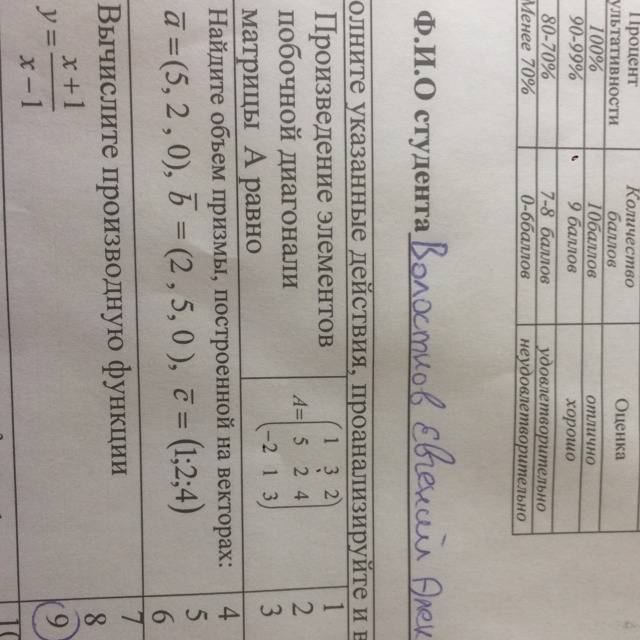 Процент
Количество баллов
Оценка
100%
10баллов
отлично
90-99%
9 баллов
хорошо
80-70%
7-8 баллов
удовлетворительно
Менее 70%
0-6баллов
неудовлетворительно
Ф.И.О студента Волостнов Евгений
указанные действия, проанализируйте и
Произведение элементов
побочной диагонали
матрицы А равно
A= ( 1 3 2
5 2 4
-2 1 3 )
1
2
3
Найдите объем призмы, построенной на векторах:
a̅ =(5, 2 , 0), b̅ =(2 , 5, 0 ), c̅ = (1;2;4)
4
5
6
Вычислите производную функции
y = (x+1)/(x−1)
7
8
9
10